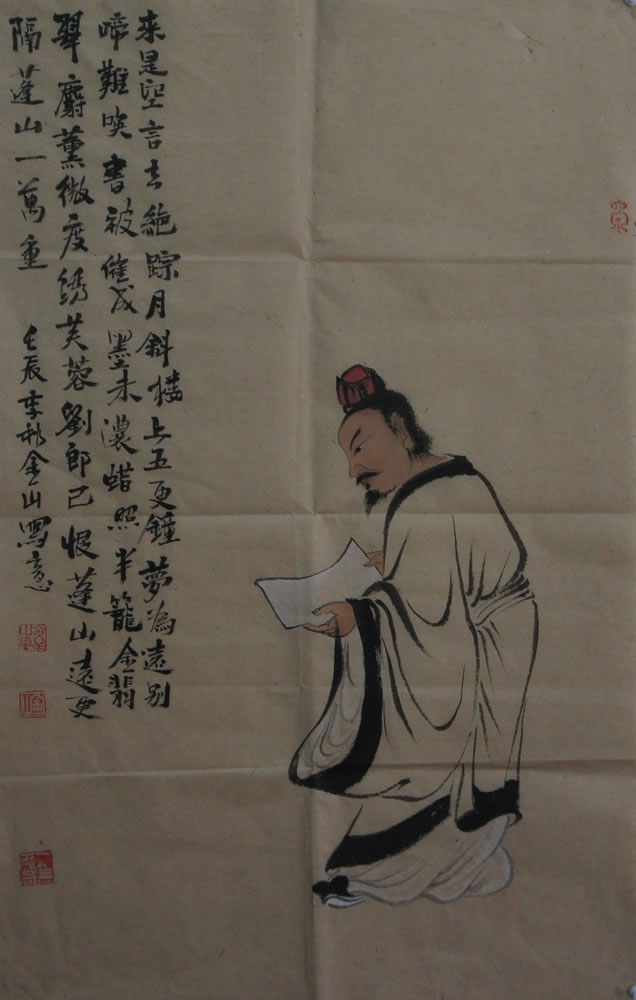 来是空言去絶踪月斜楼上五更鐘夢為遠别
啼難唤書被催成墨未濃蜡照半籠金翡
翠麝薰微度绣芙蓉劉郎已恨蓬山遠更
隔蓬山一萬重
壬辰季秋金山寫意